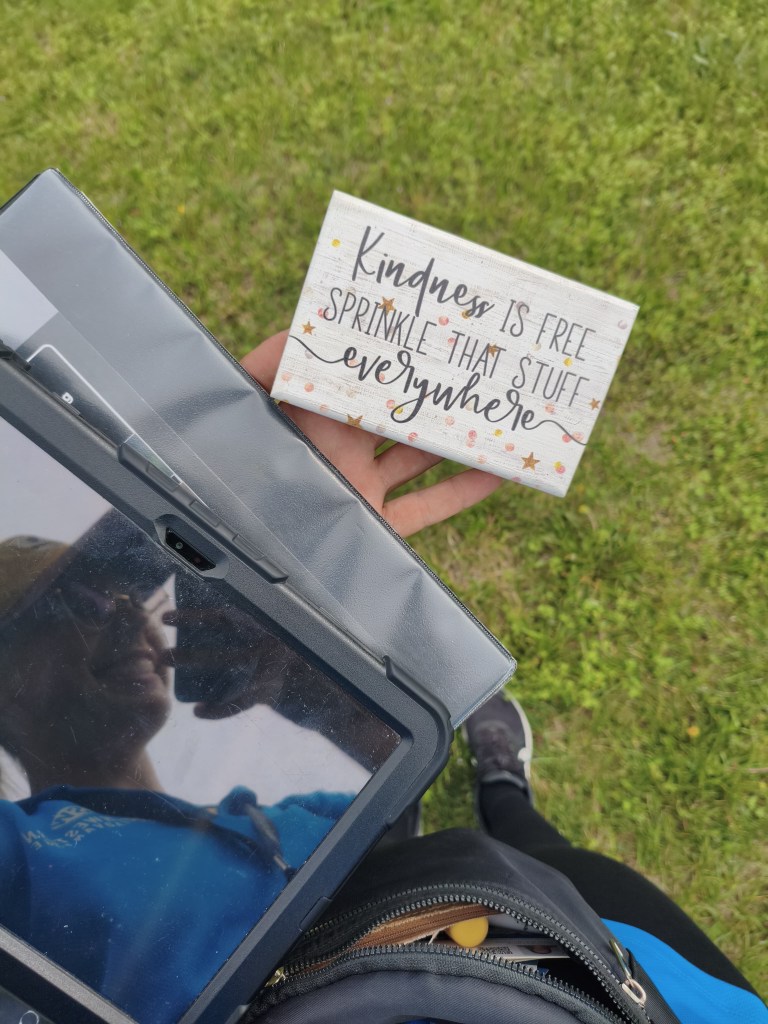 Kindness IS FREE
SPRINKLE THAT STUFF
everywhere
B